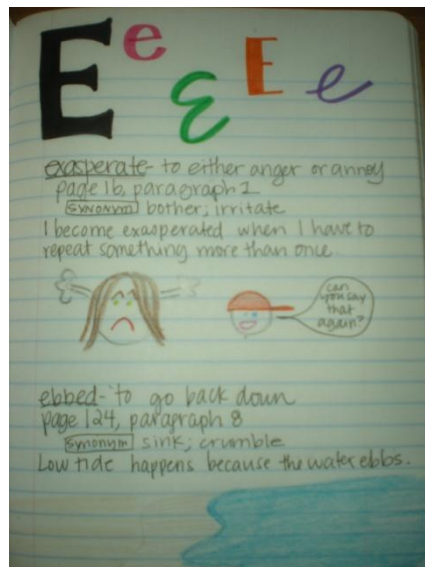 E e E E e
exasperate- to either anger or annoy
page 16, paragraph 1
synonym bother; irritate
I become exasperated when I have to
repeat something more than once.
can
you say
that
again?
ebbed- to go back down
page 124, paragraph 8
synonym sink; crumble
Low tide happens because the water ebbs.